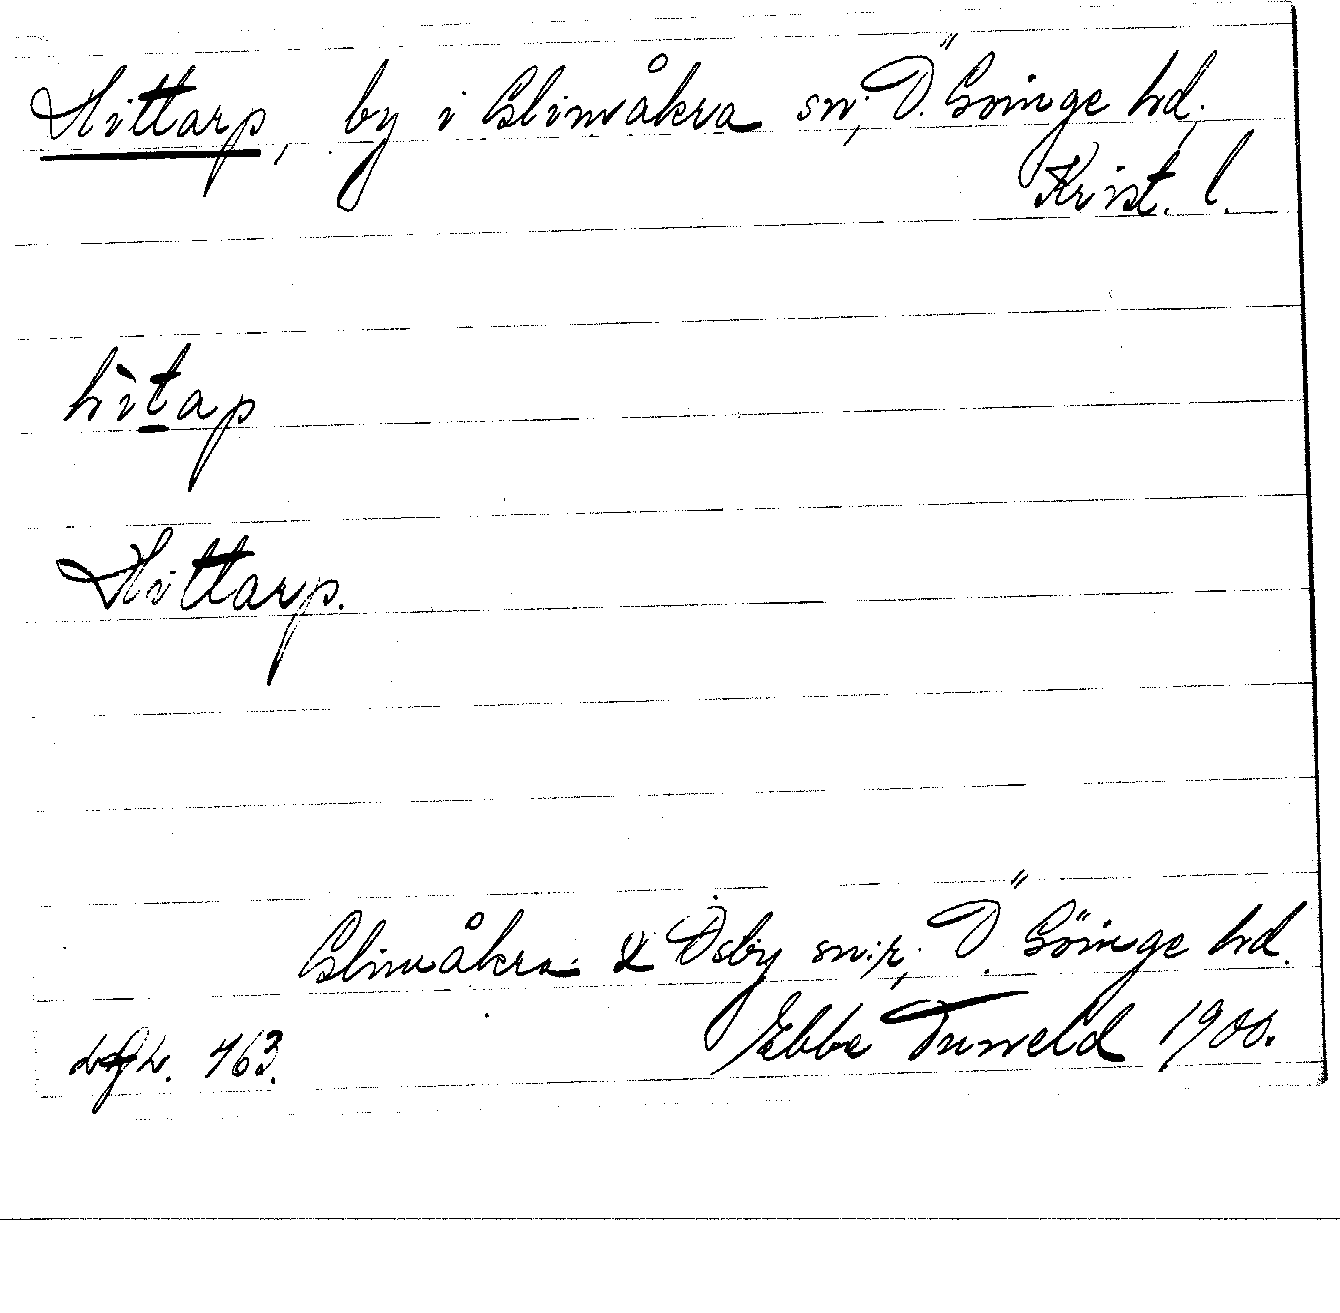 Hittarp, by i Glimåkra sn; Ö. Göinge hd;
Krist. l.
hìtap
Hittarp.
Glimåkra & Osby sn:r; Ö. Göinge hd.
Ebbe Tuneld 1900.
463.